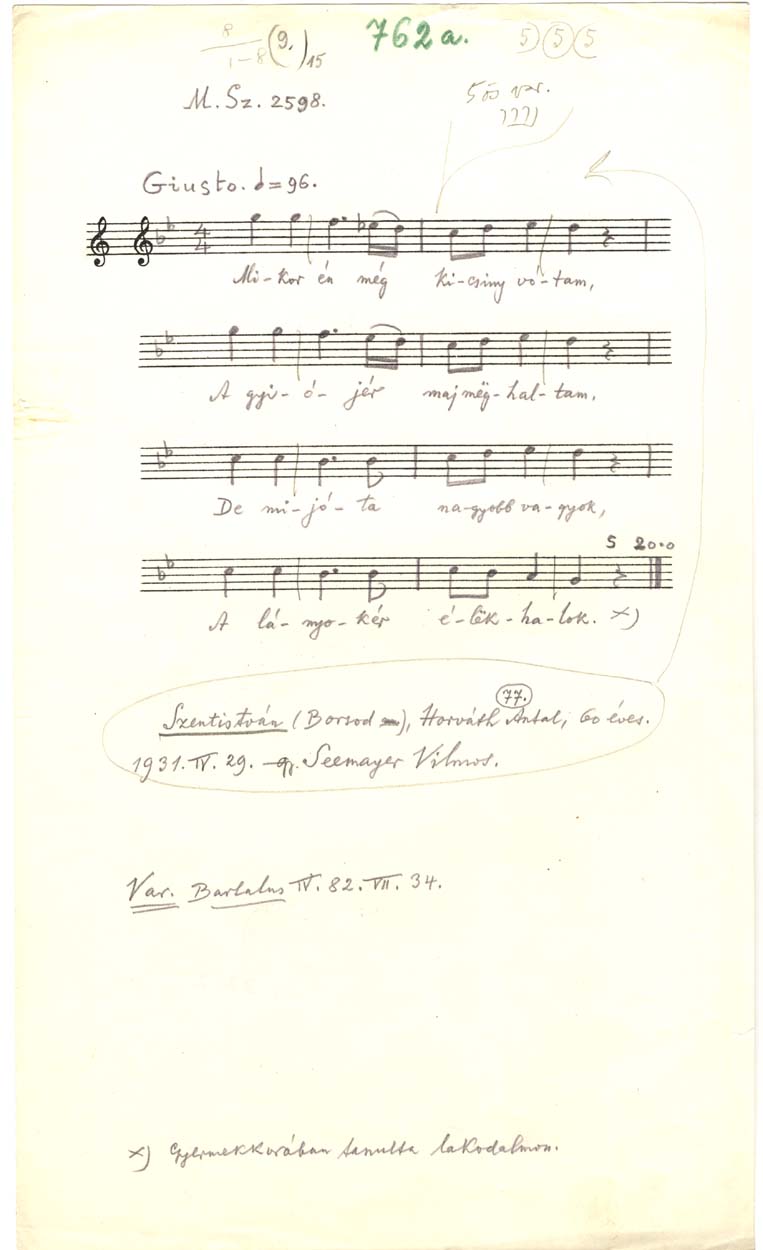 8 (9.) 762a. 5 5 5
1–8 15
M. Sz. 2598.
5ös var.
Giusto. = 96.
4
4
Mi-kor én még ki-csiny vó-tam,
A gyi-ó-jér maj mëg-hal-tam,
De mi-jó-ta na-gyobb va-gyok,
S 20.0
A lá-nyo-kér é-lëk-ha-lok. x)
77.
Szentistván (Borsod), Horváth Antal, 60 éves.
1931. IV. 29. Seemayer Vilmos.
Var. Bartalus IV. 82. VII. 34.
x) Gyermekkorában tanulta lakodalmon.